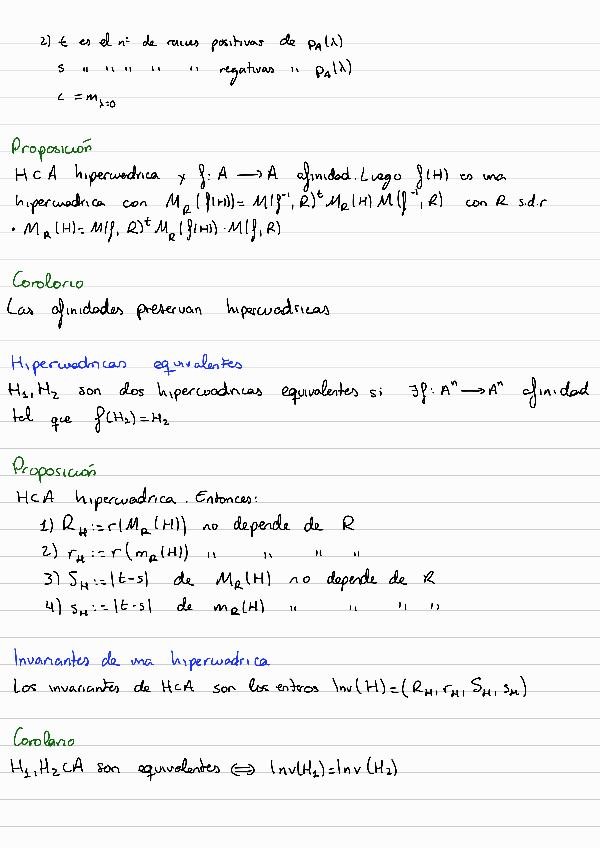 2) t es el nº de raíces positivas de p_A(λ)
s " " " " " negativas " p_A(λ)
c = m_{λ=0}
Proposición
H⊂A hipercuadrica y f: A → A afinidad. Luego f(H) es una
hipercuadrica con M_R(f(H)) = M(f⁻¹, R)^t M_R(H) M(f⁻¹, R) con R s.d.r
• M_R(H) = M(f, R)^t M_R(f(H)) · M(f, R)
Corolario
Las afinidades preservan hipercuadricas
Hipercuadricas equivalentes
H₁, H₂ son dos hipercuadricas equivalentes si ∃f: Aⁿ → Aⁿ afinidad
tal que f(H₁) = H₂
Proposición
H⊂A hipercuadrica. Entonces:
1) R_H := r(M_R(H)) no depende de R
2) r_H := r(m_R(H)) " " " "
3) S_H := |t-s| de M_R(H) no depende de R
4) s_H := |t-s| de m_R(H) " " " "
Invariantes de una hipercuadrica
Los invariantes de H⊂A son los enteros Inv(H) = (R_H, r_H, S_H, s_H)
Corolario
H₁, H₂⊂A son equivalentes ⟺ Inv(H₁) = Inv(H₂)